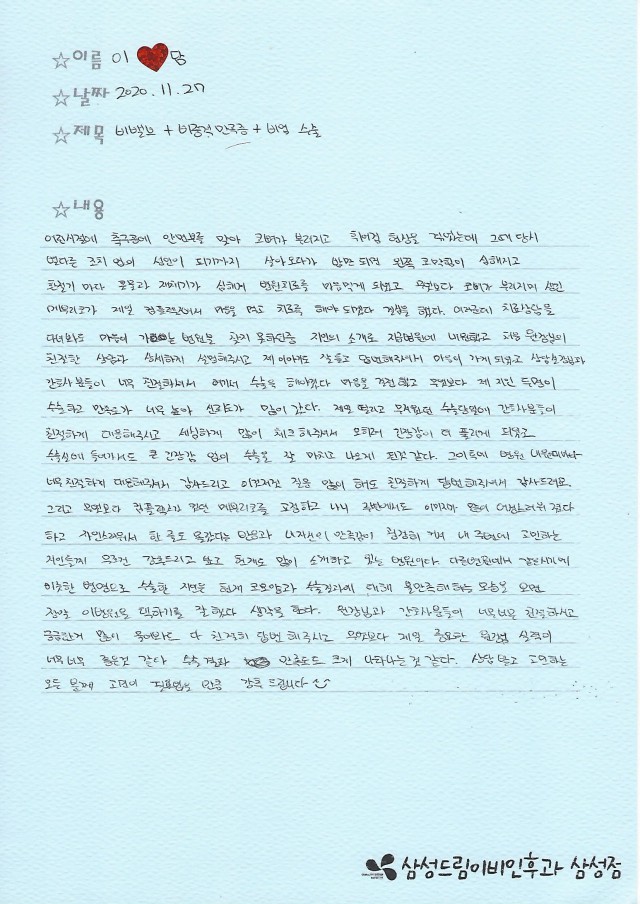 ☆이름 이 ♥맘
☆날짜 2020.11.27
☆제목 비밸브 + 비중격만곡증 + 비염 수술
☆내용
어린시절에 축구공에 안면부를 맞아 코뼈가 부러지고 휘어짐 현상을 겪었는데 그때 당시
별다른 조치 없이 성인이 되기까지 살아오다가 밤만 되면 왼쪽 코막힘이 심해지고
환절기 마다 콧물과 재채기가 심해져 병원치료를 마음먹게 되었고 무엇보다 코뼈가 부러지며 생긴
메부리코가 제일 컴플렉스여서 마음을 먹고 치료를 해야 되겠다 결정을 했다. 여러군데 치료상담을
다녀와도 마음이 가는 병원을 찾지 못하던중 지인의 소개로 지금병원에 내원했고 처음 원장님의
친절한 상담과 상세하게 설명해주시고 제 이야기도 잘 들고 답변해주셔서 마음이 가게 되었고 상담실장님과
간호사 분들이 너무 친절하셔서 여기서 수술을 해야겠다 마음을 결정 했고 무엇보다 제 지인 두명이
수술하고 만족도가 너무 높아 신뢰도가 많이 갔다. 제일 떨리고 무서웠던 수술당일에 간호사분들이
친절하게 대응해주시고 세심하게 많이 체크 해주셔서 오히려 긴장감이 더 풀리게 되었고
수술실에 들어가서도 큰 긴장감 없이 수술을 잘 마치고 나오게 된것 같다. 그이후에 병원 내원때마다
너무 친절하게 대응해주셔서 감사드리고 이것저것 질문 많이 해도 친절하게 답변해주셔서 감사드려요.
그리고 무엇보다 컴플렉스가 컸던 메부리코를 교정하고 나니 주변에서도 이미지가 많이 어려졌다
하고 자연스러워서 한 줄도 몰랐다는 반응과 내자신이 만족감이 굉장히 커져 내 주변에 고민하는
지인들께 무조건 강추드리고 싶고 현재도 많이 소개하고 있는 병원이다. 다른병원에서 같은시기에
비슷한 방법으로 수술한 지인은 현재 코모양과 수술결과에 대해 불만족해하는 모습을 보면
정말 이병원을 택하기를 잘 했다 생각을 한다. 원장님과 간호사분들이 너무너무 친절하시고
궁금한게 많이 물어봐도 다 친절히 답변 해주시고 무엇보다 제일 중요한 원장님 실력이
너무너무 좋은것 같다 수술 결과 만족도도 크게 나타나는것 같다. 상담 받고 고민하는
모든 분께 고민이 필요없을 만큼 강추 드립니다
삼성드림이비인후과 삼성점